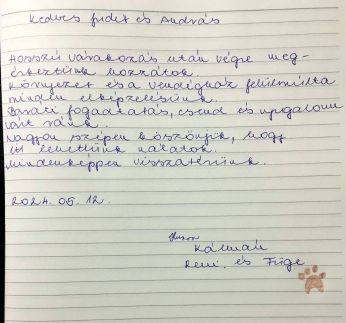 Kedves Judit és András
Hosszú várakozás után végre meg-
érkeztünk hozzátok.
Környezet és a vendégház felülmúlta
minden elképzelésünk.
Baráti fogadtatás, csend és nyugalom
várt ránk.
Nagyon szépen köszönjük, hogy
itt lehettünk nálatok.
Mindenképpen visszatérünk.
2024. 05. 12.
Kálmán
Reni és Füge